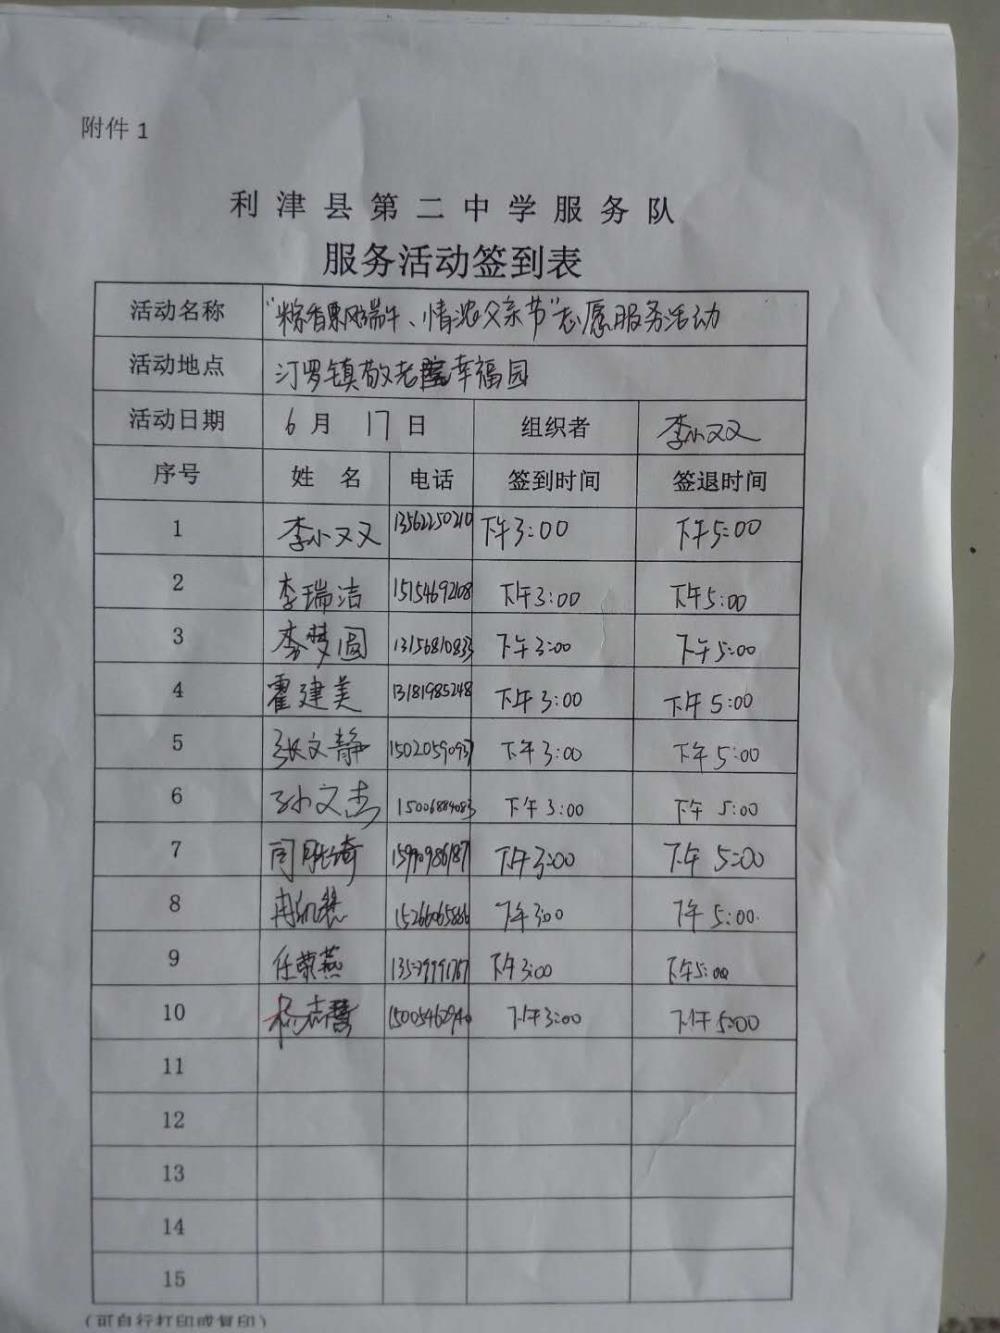 附件 1
利津县第二中学服务队
服务活动签到表
活动名称 “粽香飘端午、情浓父亲节”志愿服务活动
活动地点 汀罗镇敬老院幸福园
活动日期 6 月 17 日 组织者 李小双
序号 姓 名 电话 签到时间 签退时间
1 李小双 13562250210 下午3:00 下午5:00
2 李瑞洁 15154692108 下午3:00 下午5:00
3 李梦圆 13156810833 下午3:00 下午5:00
4 霍建美 13181985248 下午3:00 下午5:00
5 张文静 下午3:00 下午5:00
6 孙文杰 下午3:00 下午5:00
7 下午3:00 下午5:00
8 下午3:00 下午5:00
9 任荣燕 下午3:00 下午5:00
10 下午3:00 下午5:00
11
12
13
14
15
(可自行打印或复印)